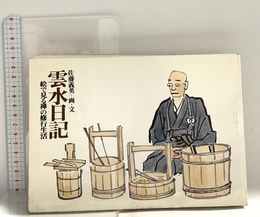 佐藤義英・画・文
雲水日記
絵で見る禅の修行生活